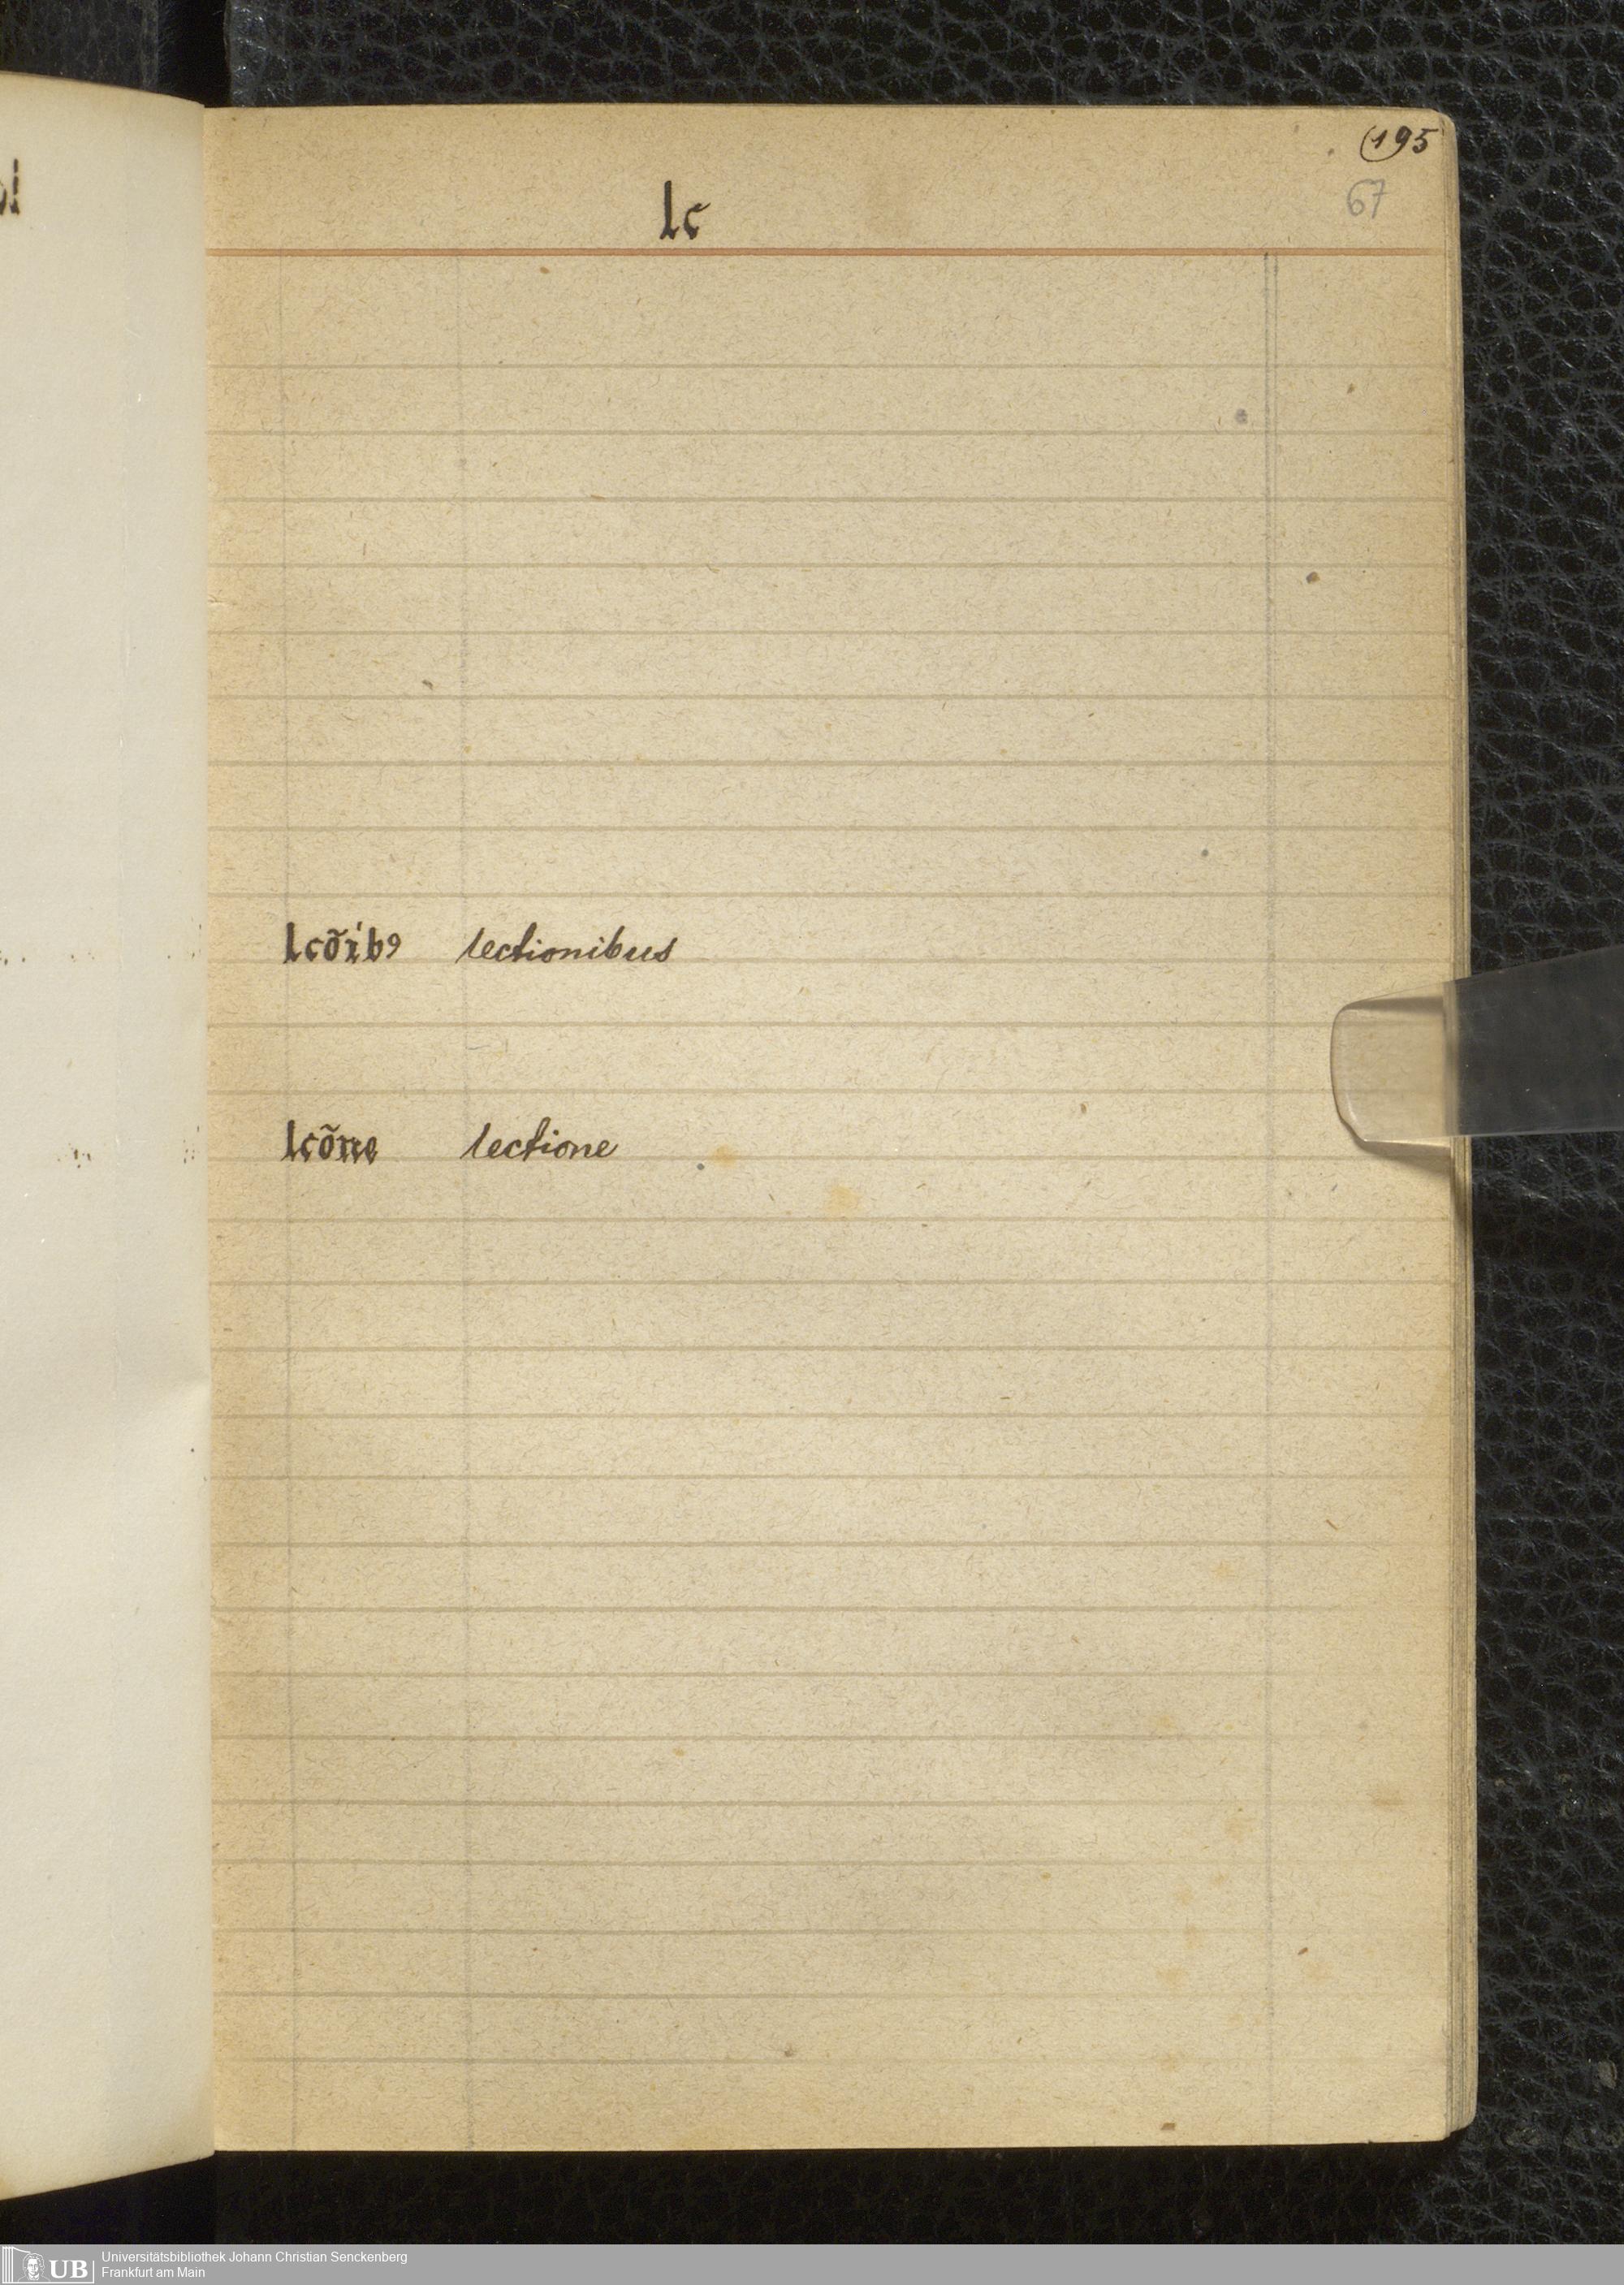 195
67
lc
lcõíb9 lectionibus
lcõne lectione
UB Universitätsbibliothek Johann Christian Senckenberg
Frankfurt am Main